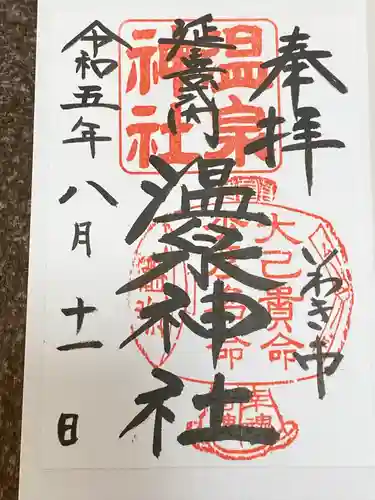 奉拝
いわき市
延喜式内
温泉神社
令和五年八月十一日
温泉神社
大己貴命
少彦名命